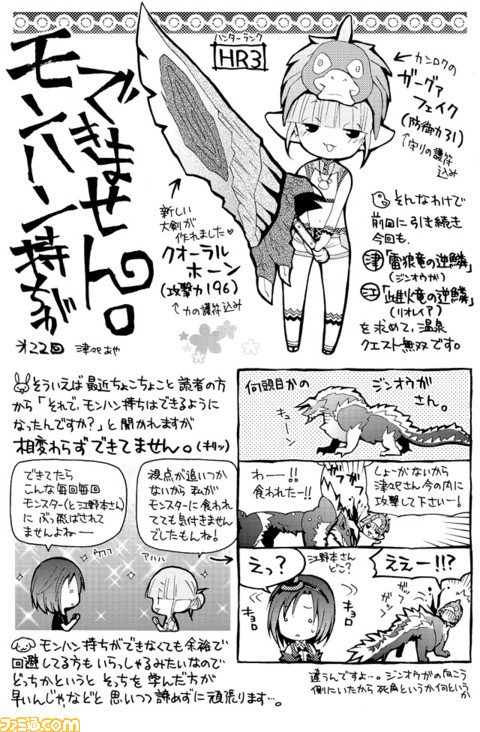 モンハン持ちが
できません。
才22回
津々巳あや
ハンターランク
HR3
カンロクの
ガーグァ
フェイク
(防御力31)
↑守りの護符
込み
新しい
大剣が
作れました
クオーラル
ホーン
(攻撃力196)
↑力の護符込み
そんなわけで
前回に引き続き
今回も、
津「雷狼竜の逆鱗」
(ジンオウガ)
江「雌火竜の逆鱗」
(リオレイア)
を求めて、温泉
クエスト無双です。
そういえば最近ちょこちょこと読者の方
から「それで、モンハン持ちはできるように
なったんですか?」と聞かれますが
相変わらずできてません。(キリッ)
視点が追いつか
ないから私が
モンスターに食われ
てても気付きません
でしたもんね!
できてたら
こんな毎回毎回
モンスター(と江野本さん)
にぶっ飛ばされて
ませんよねー
ウフフ
アハハ
モンハン持ちができなくても余裕で
回避してる方もいらっしゃるみたいなので
どっちかというとそっちを学んだ方が
早いんじゃなどと思いつつ諦めずに頑張ります…。
何頭目かの
ジンオウガ
さん。
キューン
わー!!
食われたー!!
しょーがないから
津々巳さん今の内に
攻撃して下さいー!
えっ?
江野本さん
どこ?
キョロ
キョロ
えぇー!!?
違うんですよ…。ジンオウガの向こう
側にいたから死角というか何というか
ファミ通.com